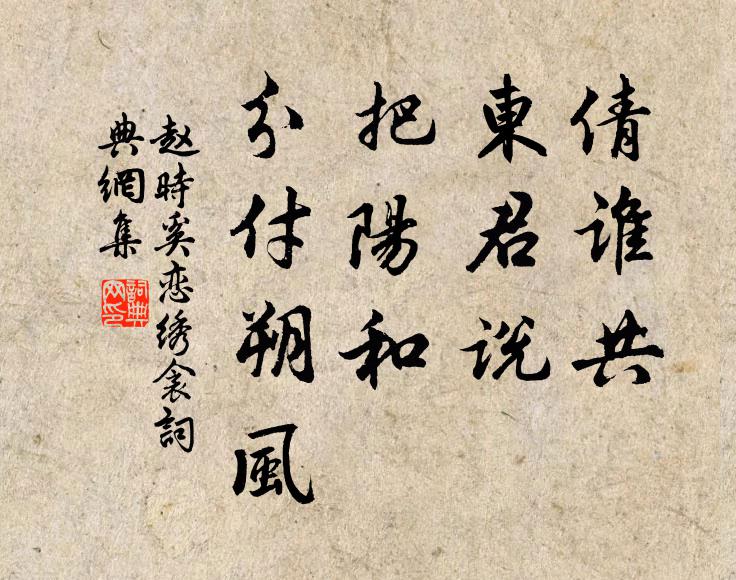 倩谁共
東君説
把陽和
分付朔風
赵時奚恋绣衾詞
典網集
詞典
网印